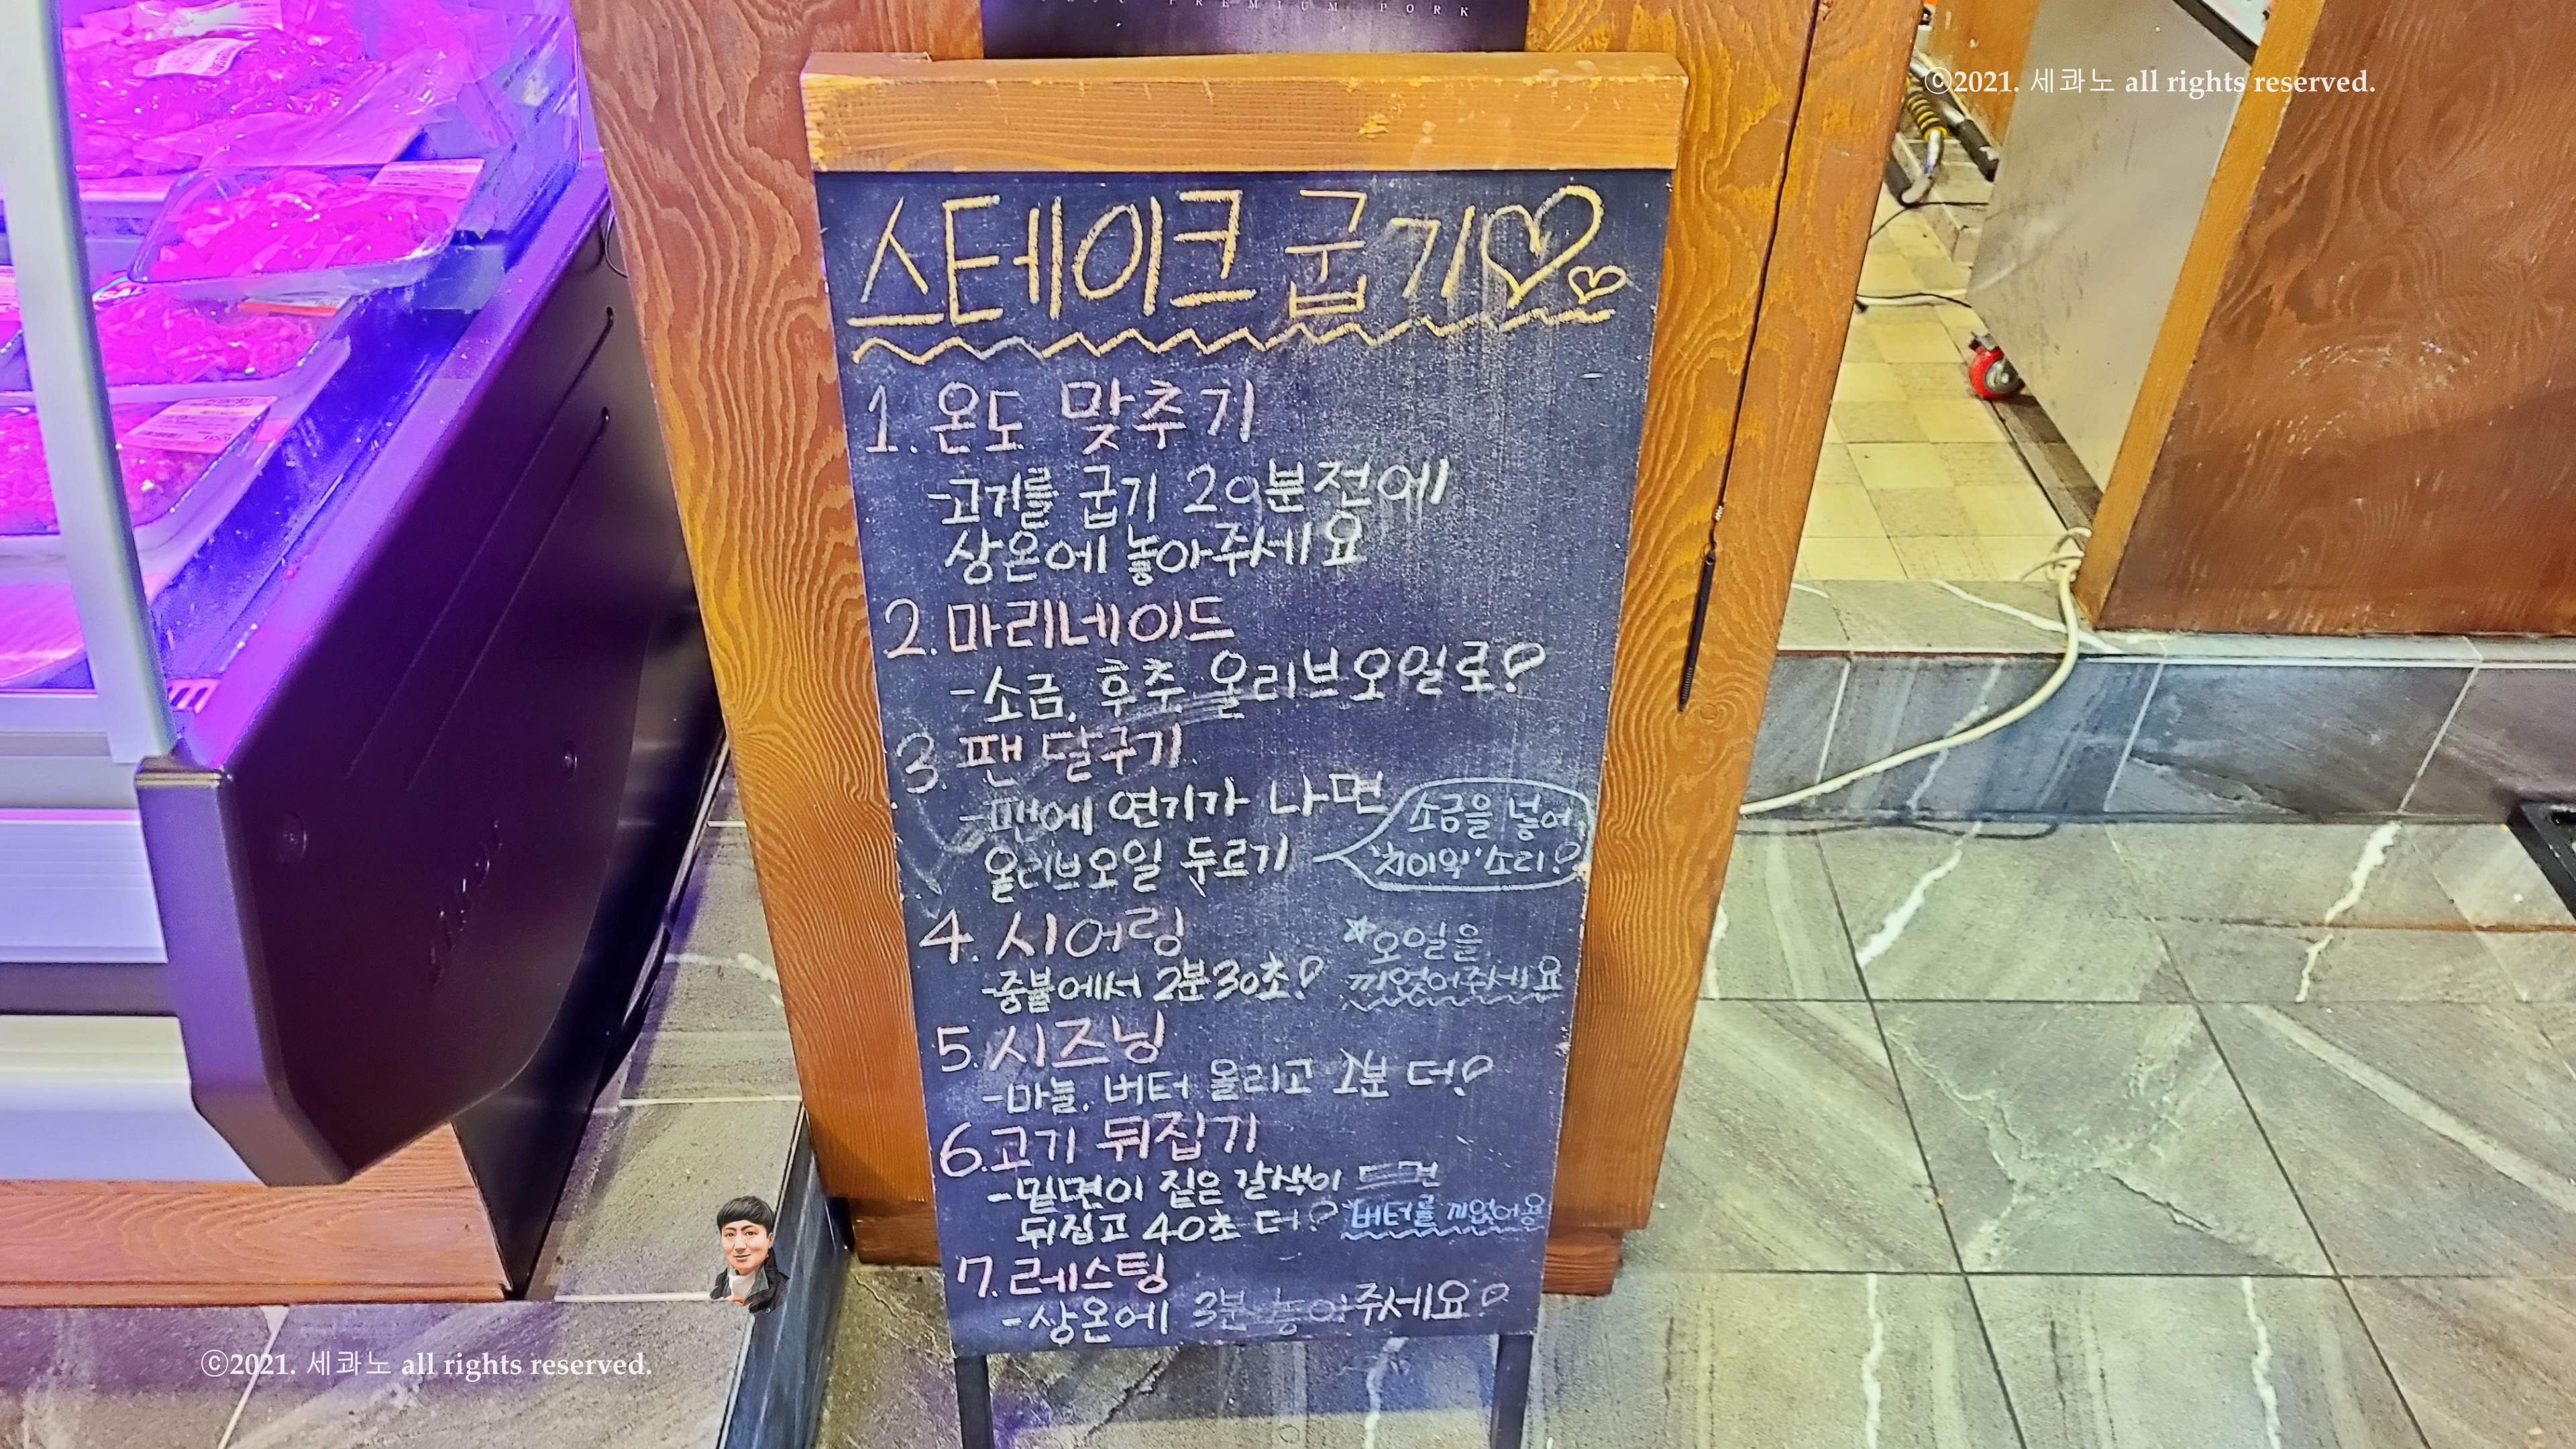 PREMIUM PORK
ⓒ2021. 세콰노 all rights reserved.
스테이크 굽기♡♡
1. 온도 맞추기
-고기를 굽기 20분전에
상온에 놓아주세요
2. 마리네이드
-소금, 후추, 올리브오일로!
3. 팬 달구기
-팬에 연기가 나면
올리브오일 두르기
소금을 넣어
'치이익' 소리!
4. 시어링
-중불에서 2분30초!
*오일을
끼얹어주세요
5. 시즈닝
-마늘, 버터 올리고 1분 더!
6. 고기 뒤집기
-밑면이 짙은 갈색이 되면
뒤집고 40초 더!
*버터를 끼얹어용
7. 레스팅
-상온에 3분 놓아주세요!
ⓒ2021. 세콰노 all rights reserved.